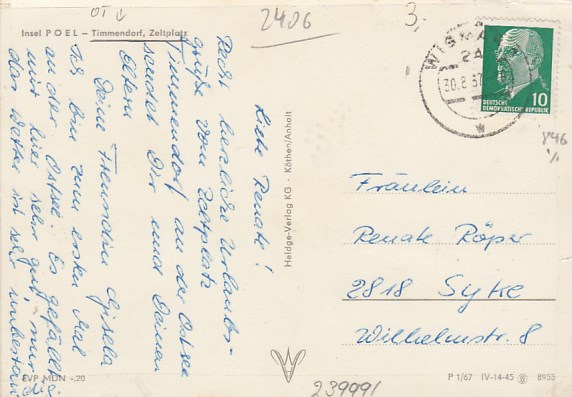 OT
2406
3,-
Insel POEL – Timmendorf, Zeltplatz
WISMAR
24
30.8.67
DEUTSCHE
DEMOKRATISCHE REPUBLIK
10
Liebe Renate!
Recht herzliche Urlaubs-
grüße vom Zeltplatz
Timmendorf an der Ostsee
sendet Dir und Deinen
Eltern
Deine Freundin Gisela
Ich bin zum ersten Mal
an der Ostsee. Es gefällt
mir hier sehr gut, nur
das Wetter ist sehr unbestän
Heldge-Verlag KG · Köthen/Anhalt
Fräulein
Renate Röper
2818 Syke
Wilhelmstr. 8
EVP MDN -,20
239991
P 1/67 IV-14-45 8955